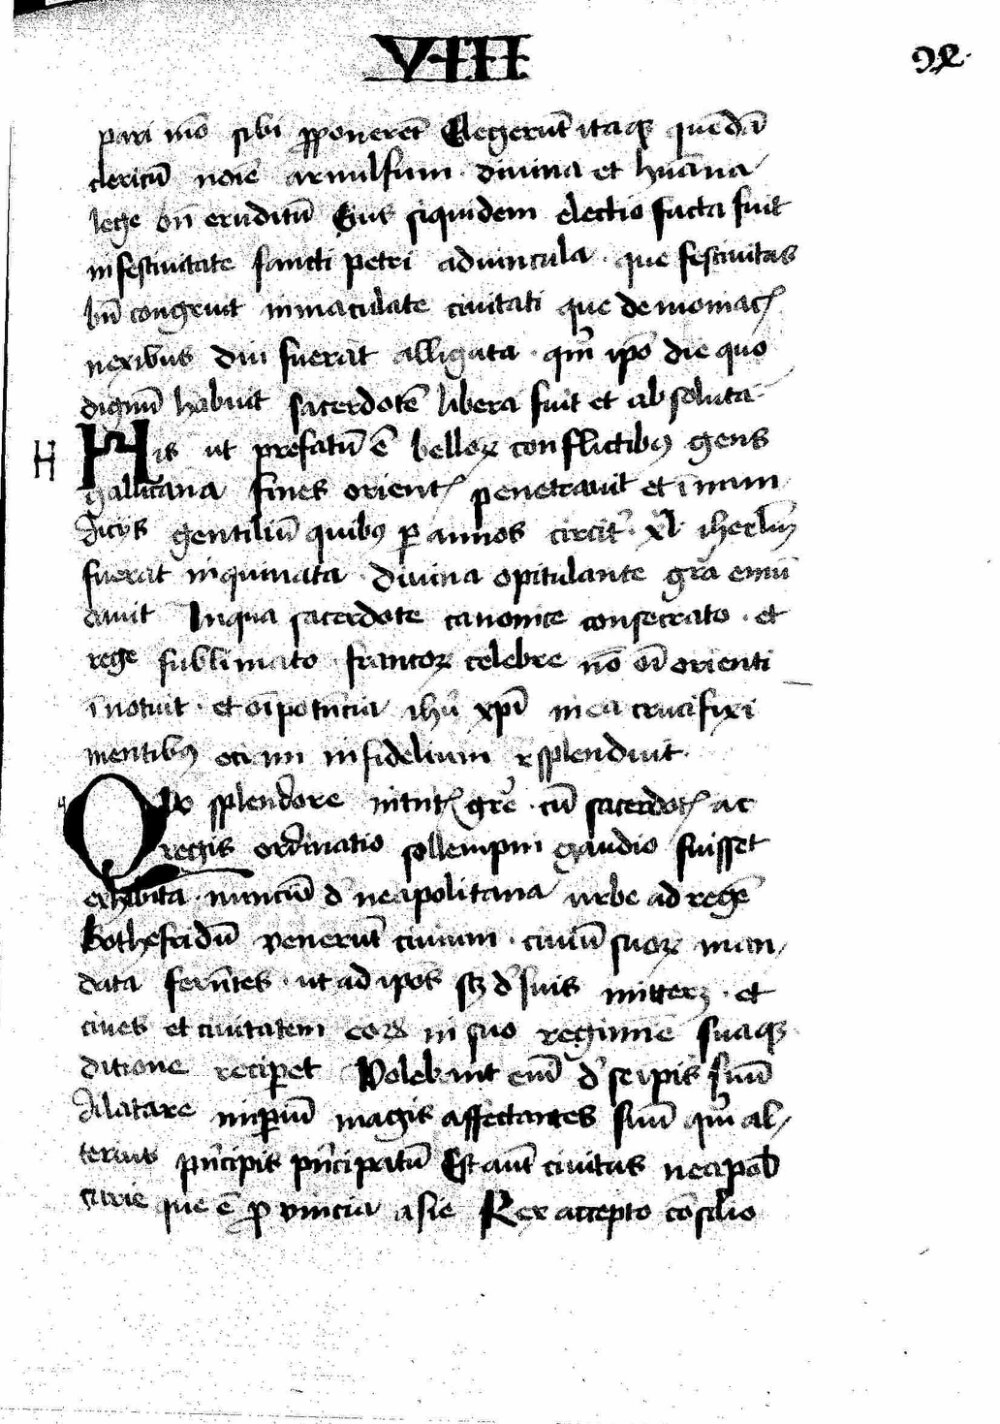 VIII
pari mo͞ sibi p̱poneret͞ Elegerut͞ itaqꝫ quēdā
clericū noīe arnulfum · divina et humāna
lege bn͞ eruditū Eius siquidem electio facta fuit
in festivitate sancti petri ad vincula · que festivitas
bn͞ congruit inmaculate civitati que demoniacꝭ
nexibus diu fuerat alligata · qm͞ ip̄o die quo
dignū habuit sacerdotē libera fuit et absoluta
H
His ut prefatū ē belloꝝ conflictibꝰ gens
gallicana fines orientꝭ penetravit et īmun
diciis gentiliū quibꝰ ꝑ annos circit͛ · xl · iherlm͞
fuerat inquinata · divina opitulante gra͞ emū
davit In qua sacerdote canonice consecrato · et
rege sublimato · francoꝝ celebre no͞ oī orienti
īnotuit · et oīpotēncia ihū xp̄i in ea crucifixi
mentibꝰ eciam infidelium resplenduit ·
Quo splendore nitentꝭ gre͞ · cū sacerdotꝭ ac
regis ordinatio sollempni gaudio fuisset
exhibita · nunciū d͛ neapolitana urbe ad regē
Gothefridū venerut͞ civium · civiū suoꝝ man
data ferēntes · ut ad ip̄os sꝫ d͛ suis mitterꝫ · et
cives et civitatem eoꝝ in suo regimīe suaqꝫ
ditione reciꝑet Volebant enī d͛ se ip̄is suū
dilatare imꝑiū magis affectantes suū qm͛ al
terius pn͛cipis pn͛cipatū Est aūt civitas neapol͞
sirie que ē ꝓvincia asie Rex accepto cōsilio